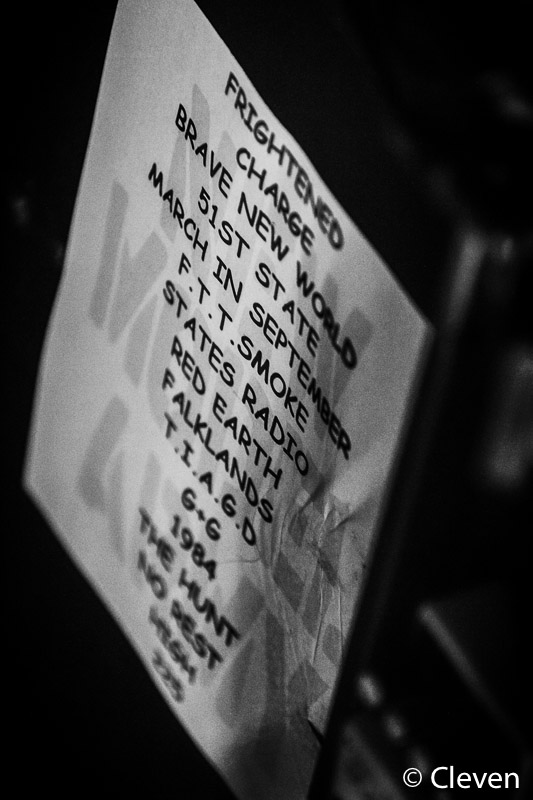 FRIGHTENED
CHARGE
BRAVE NEW WORLD
51ST STATE
MARCH IN SEPTEMBER
F.T.T.SMOKE
STATES RADIO
RED EARTH
FALKLANDS
T.I.A.G.D
G+G
1984
THE HUNT
NO REST
HIGH
225
© Cleven